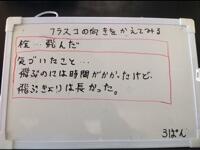 フラスコの向きをかえてみる
栓…飛んだ
気づいたこと…
飛ぶのには時間がかかったけど、
飛ぶきょりは長かった。
3ぱん